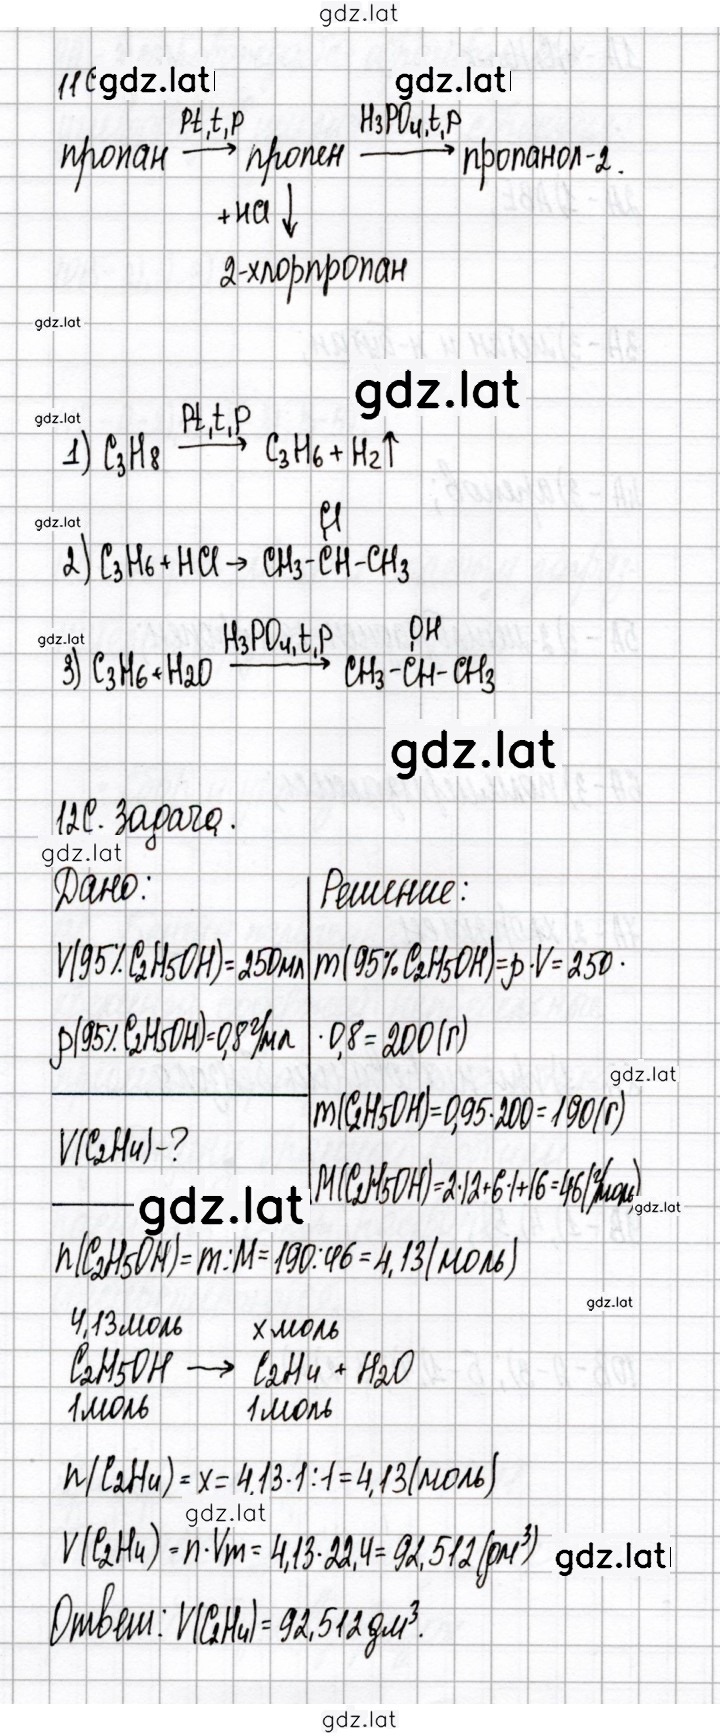 gdz.lat
11С
gdz.lat gdz.lat
Pt,t,p H₃PO₄,t,p
пропан → пропен → пропанол-2.
+HCl ↓
2-хлорпропан
gdz.lat
gdz.lat
gdz.lat
Pt,t,p
1) C₃H₈ → C₃H₆ + H₂↑
gdz.lat
Cl
2) C₃H₆ + HCl → CH₃-CH-CH₃
gdz.lat
H₃PO₄,t,p OH
3) C₃H₆ + H₂O → CH₃-CH-CH₃
gdz.lat
12С. Задача.
gdz.lat
Дано: Решение:
V(95% C₂H₅OH)=250мл m(95% C₂H₅OH)=ρ·V=250·
ρ(95% C₂H₅OH)=0,8г/мл ·0,8=200(г)
gdz.lat
m(C₂H₅OH)=0,95·200=190(г)
V(C₂H₄)-?
M(C₂H₅OH)=2·12+6·1+16=46(г/моль)
gdz.lat gdz.lat
n(C₂H₅OH)=m:M=190:46=4,13(моль)
gdz.lat
4,13моль x моль
C₂H₅OH → C₂H₄ + H₂O
1моль 1моль
n(C₂H₄)=x=4,13·1:1=4,13(моль)
gdz.lat
V(C₂H₄)=n·Vm=4,13·22,4=92,512(дм³)
gdz.lat
Ответ: V(C₂H₄)=92,512дм³.
gdz.lat